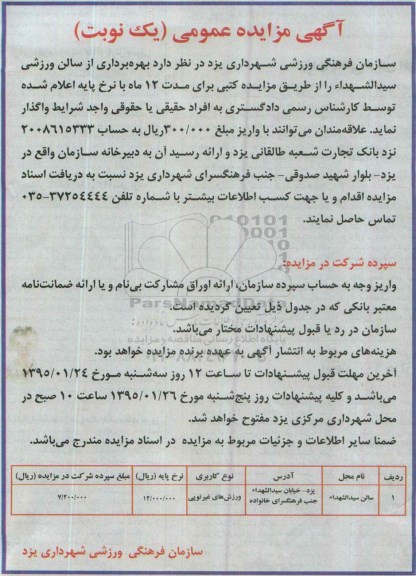 آگهی مزایده عمومی (یک نوبت)
سازمان فرهنگی ورزشی شهرداری یزد در نظر دارد بهره‌برداری از سالن ورزشی
سیدالشهداء را از طریق مزایده کتبی برای مدت ۱۲ ماه با نرخ پایه اعلام شده
توسط کارشناس رسمی دادگستری به افراد حقیقی یا حقوقی واجد شرایط واگذار
نماید. علاقه‌مندان می‌توانند با واریز مبلغ ۳۰۰/۰۰۰ریال به حساب ۲۰۰۸۶۱۵۳۳۳
نزد بانک تجارت شعبه طالقانی یزد و ارائه رسید آن به دبیرخانه سازمان واقع در
یزد- بلوار شهید صدوقی- جنب فرهنگسرای شهرداری یزد نسبت به دریافت اسناد
مزایده اقدام و یا جهت کسب اطلاعات بیشتر با شماره تلفن ۳۷۲۵۴۴۴۴-۰۳۵
تماس حاصل نمایند.
سپرده شرکت در مزایده:
واریز وجه به حساب سپرده سازمان، ارائه اوراق مشارکت بی‌نام و یا ارائه ضمانت‌نامه
معتبر بانکی که در جدول ذیل تعیین گردیده است.
سازمان در رد یا قبول پیشنهادات مختار می‌باشد.
هزینه‌های مربوط به انتشار آگهی به عهده برنده مزایده خواهد بود.
آخرین مهلت قبول پیشنهادات تا ساعت ۱۲ روز سه‌شنبه مورخ ۱۳۹۵/۰۱/۲۴
می‌باشد و کلیه پیشنهادات روز پنج‌شنبه مورخ ۱۳۹۵/۰۱/۲۶ ساعت ۱۰ صبح در
محل شهرداری مرکزی یزد مفتوح خواهد شد.
ضمنا سایر اطلاعات و جزئیات مربوط به مزایده در اسناد مزایده مندرج می‌باشد.
ردیف نام محل آدرس نوع کاربری نرخ پایه (ریال) مبلغ سپرده شرکت در مزایده (ریال)
۱ سالن سیدالشهداء یزد- خیابان سیدالشهداء جنب فرهنگسرای خانواده ورزش‌های غیرتوپی ۱۲/۰۰۰/۰۰۰ ۷/۲۰۰/۰۰۰
سازمان فرهنگی ورزشی شهرداری یزد